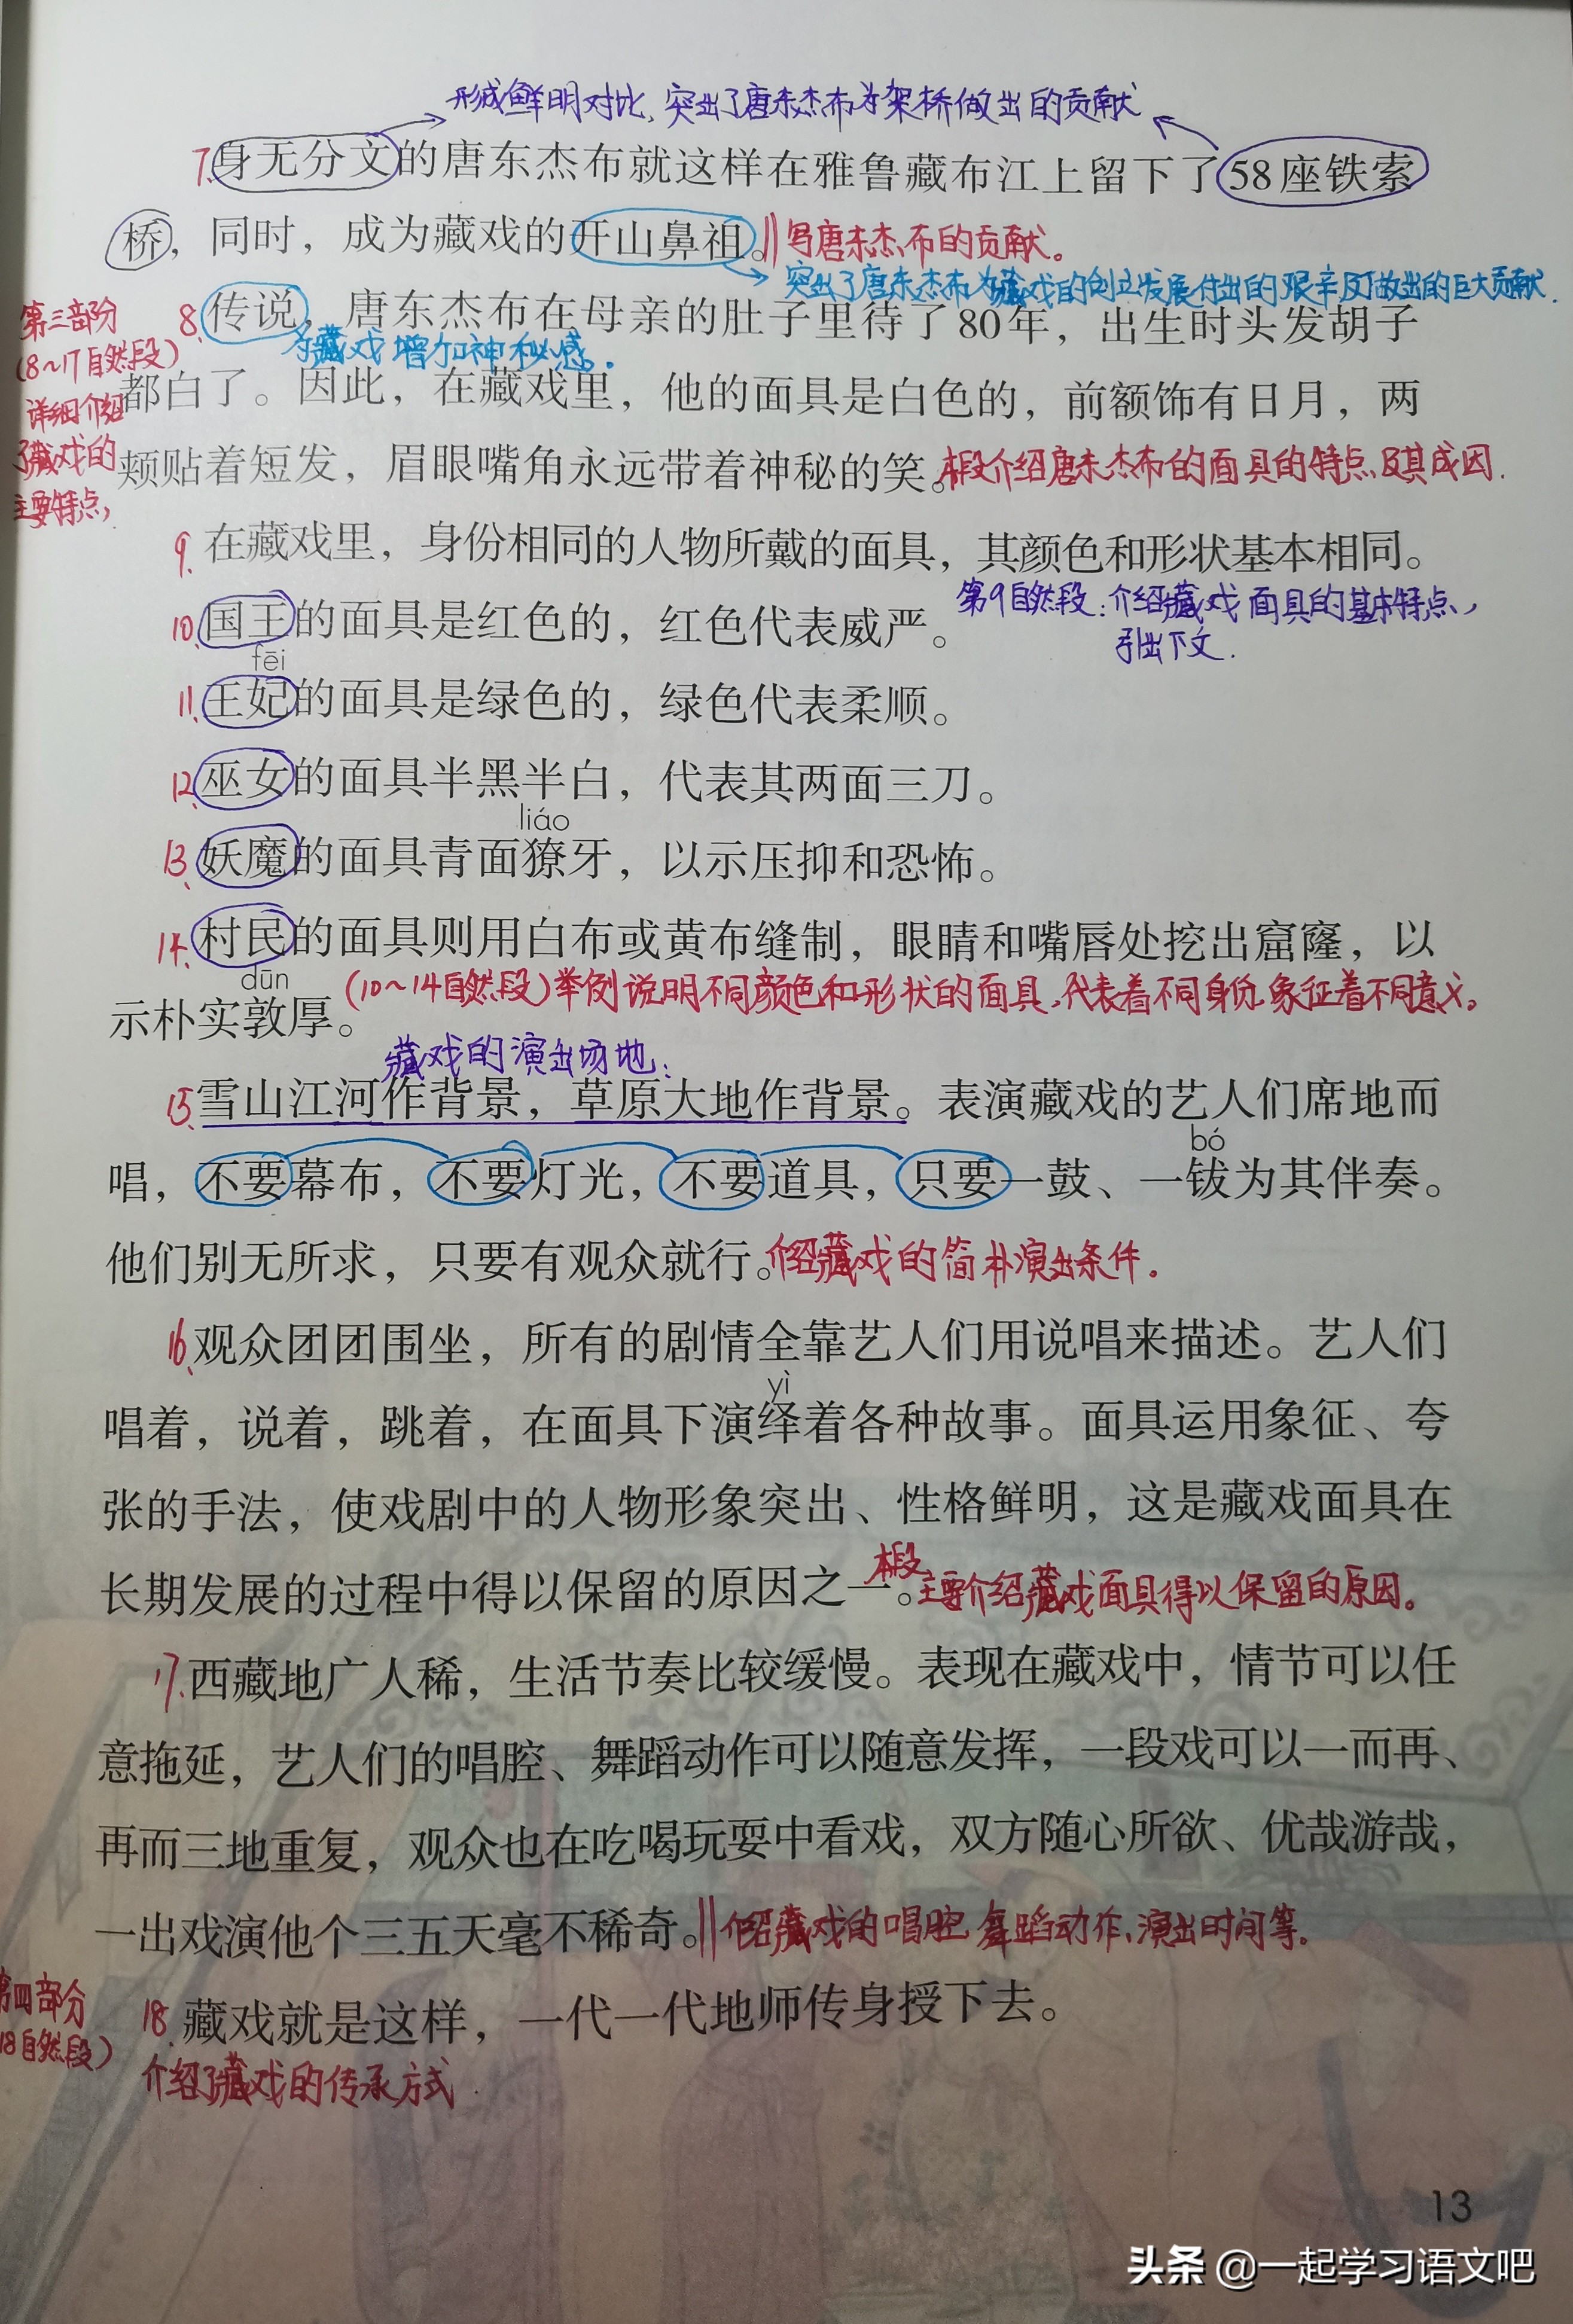 形成鲜明对比,突出了唐东杰布为架桥做出的贡献
7.身无分文的唐东杰布就这样在雅鲁藏布江上留下了58座铁索
桥，同时，成为藏戏的开山鼻祖。‖写唐东杰布的贡献。
突出了唐东杰布为藏戏的创立发展付出的艰辛及做出的巨大贡献.
第三部分
(8~17自然段)
详细介绍
了藏戏的
主要特点,
8.传说，唐东杰布在母亲的肚子里待了80年，出生时头发胡子
为藏戏增加神秘感。
都白了。因此，在藏戏里，他的面具是白色的，前额饰有日月，两
颊贴着短发，眉眼嘴角永远带着神秘的笑。本段介绍唐东杰布的面具的特点及其成因.
9.在藏戏里，身份相同的人物所戴的面具，其颜色和形状基本相同。
第9自然段:介绍藏戏面具的基本特点,
引出下文.
10.国王的面具是红色的，红色代表威严。
fēi
11.王妃的面具是绿色的，绿色代表柔顺。
12.巫女的面具半黑半白，代表其两面三刀。
liáo
13.妖魔的面具青面獠牙，以示压抑和恐怖。
14.村民的面具则用白布或黄布缝制，眼睛和嘴唇处挖出窟窿，以
dūn
示朴实敦厚。(10~14自然段)举例说明不同颜色和形状的面具,代表着不同身份,象征着不同意义。
藏戏的演出场地:
15.雪山江河作背景，草原大地作背景。表演藏戏的艺人们席地而
bó
唱，不要幕布，不要灯光，不要道具，只要一鼓、一钹为其伴奏。
他们别无所求，只要有观众就行。介绍藏戏的简朴演出条件.
16.观众团团围坐，所有的剧情全靠艺人们用说唱来描述。艺人们
yì
唱着，说着，跳着，在面具下演绎着各种故事。面具运用象征、夸
张的手法，使戏剧中的人物形象突出、性格鲜明，这是藏戏面具在
长期发展的过程中得以保留的原因之一。本段主要介绍藏戏面具得以保留的原因。
17.西藏地广人稀，生活节奏比较缓慢。表现在藏戏中，情节可以任
意拖延，艺人们的唱腔、舞蹈动作可以随意发挥，一段戏可以一而再、
再而三地重复，观众也在吃喝玩耍中看戏，双方随心所欲、优哉游哉，
一出戏演他个三五天毫不稀奇。‖介绍藏戏的唱腔、舞蹈动作、演出时间等。
第四部分
18自然段)
18.藏戏就是这样，一代一代地师传身授下去。
介绍了藏戏的传承方式.
13
头条 @一起学习语文吧